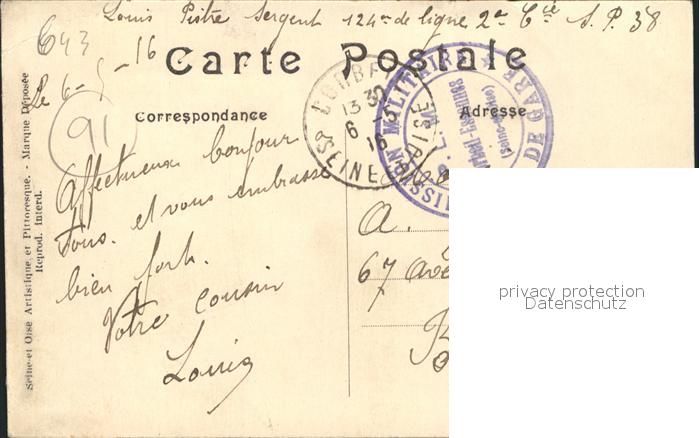 Louis Pistre Sergent 124me de ligne 2e Cie S. P. 38
643
Le 6-5-16
Carte Postale
Correspondance
Adresse
91
CORBEIL
13 30
6 -5
16
SEINE-ET-OISE
COMMISSION MILITAIRE DE GARE
Corbeil-Essonnes
(Seine-et-Oise)
P. L. M.
Affectueux bonjour
tous. et vous embrasse
bien fort.
Votre cousin
Louis
A.
67
Seine-et-Oise Artistique et Pittoresque. - Marque Déposée
Reprod. interd.
privacy protection
Datenschutz